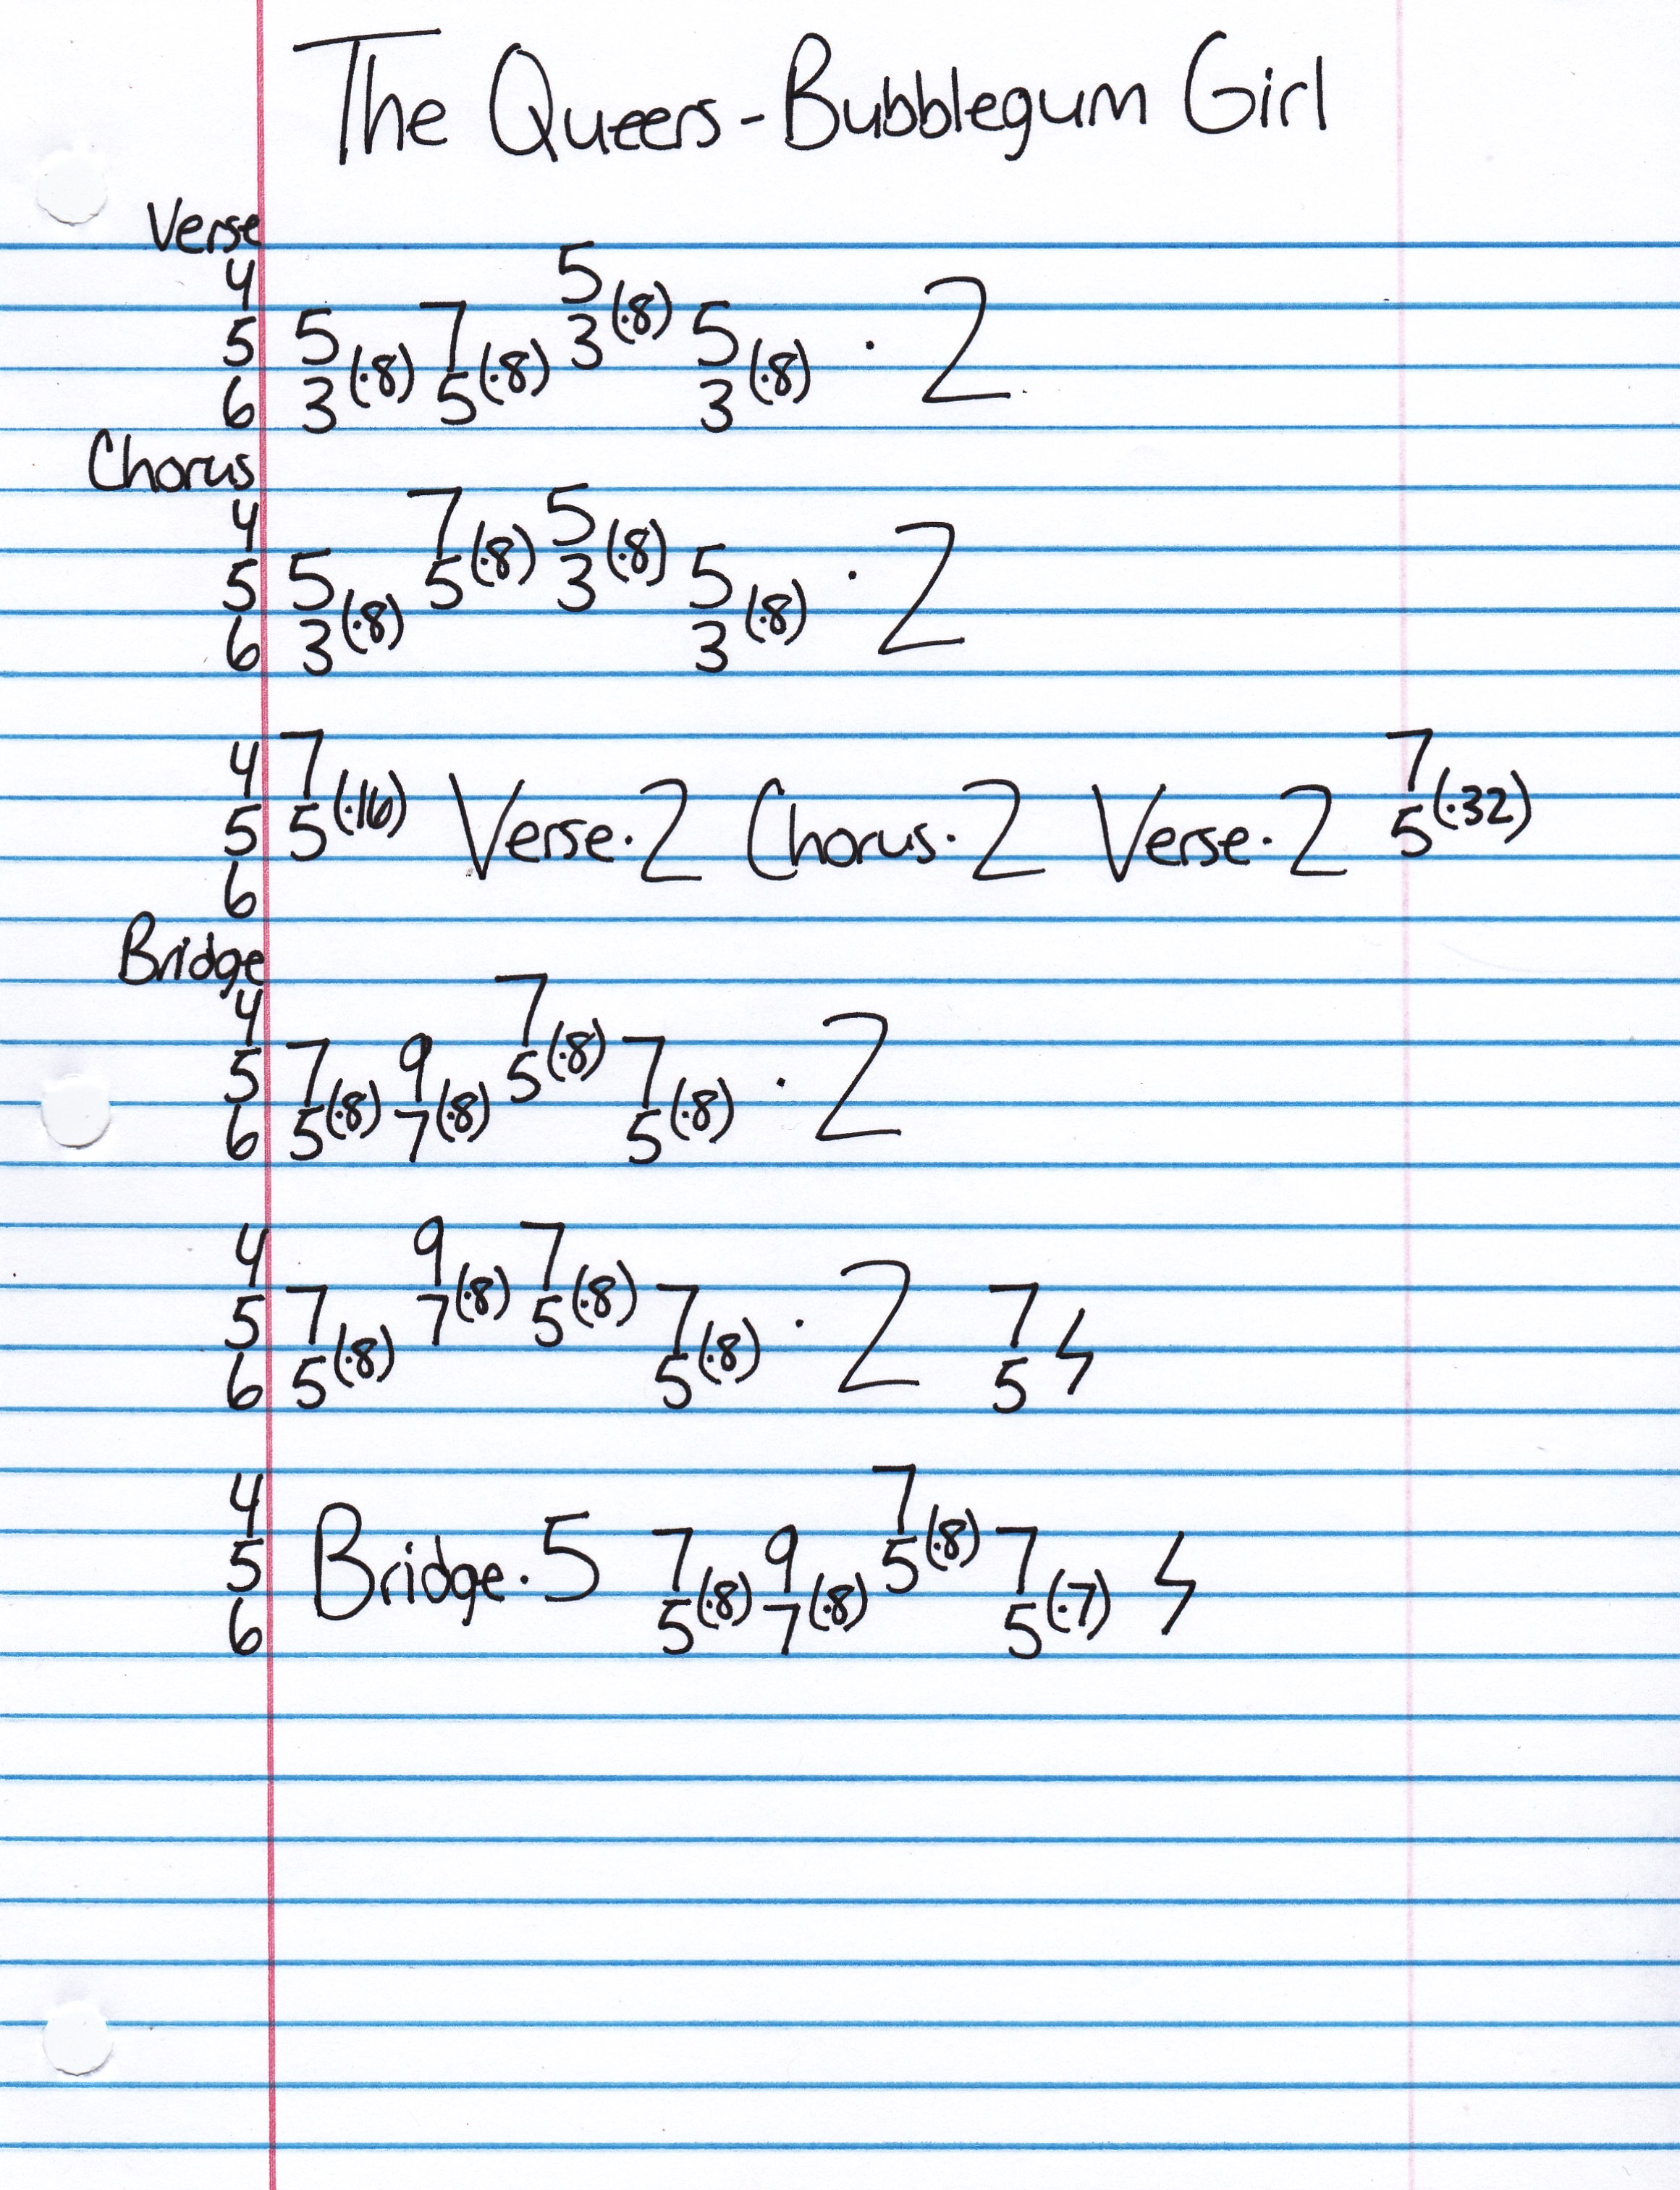 The Queers - Bubblegum Girl
Verse
4 5
5 5 7 3(·8) 5
6 3(·8) 5(·8) 3(·8) · 2
Chorus
4 7 5
5 5 5(·8) 3(·8) 5
6 3(·8) 3(·8) · 2
4 7 7
5 5(·16) Verse·2 Chorus·2 Verse·2 5(·32)
6
Bridge
4 7
5 7 9 5(·8) 7
6 5(·8) 7(·8) 5(·8) · 2
4 9 7
5 7 7(·8) 5(·8) 7 7
6 5(·8) 5(·8) · 2 5 ϟ
4 7
5 Bridge·5 7 9 5(·8) 7
6 5(·8) 7(·8) 5(·7) ϟ